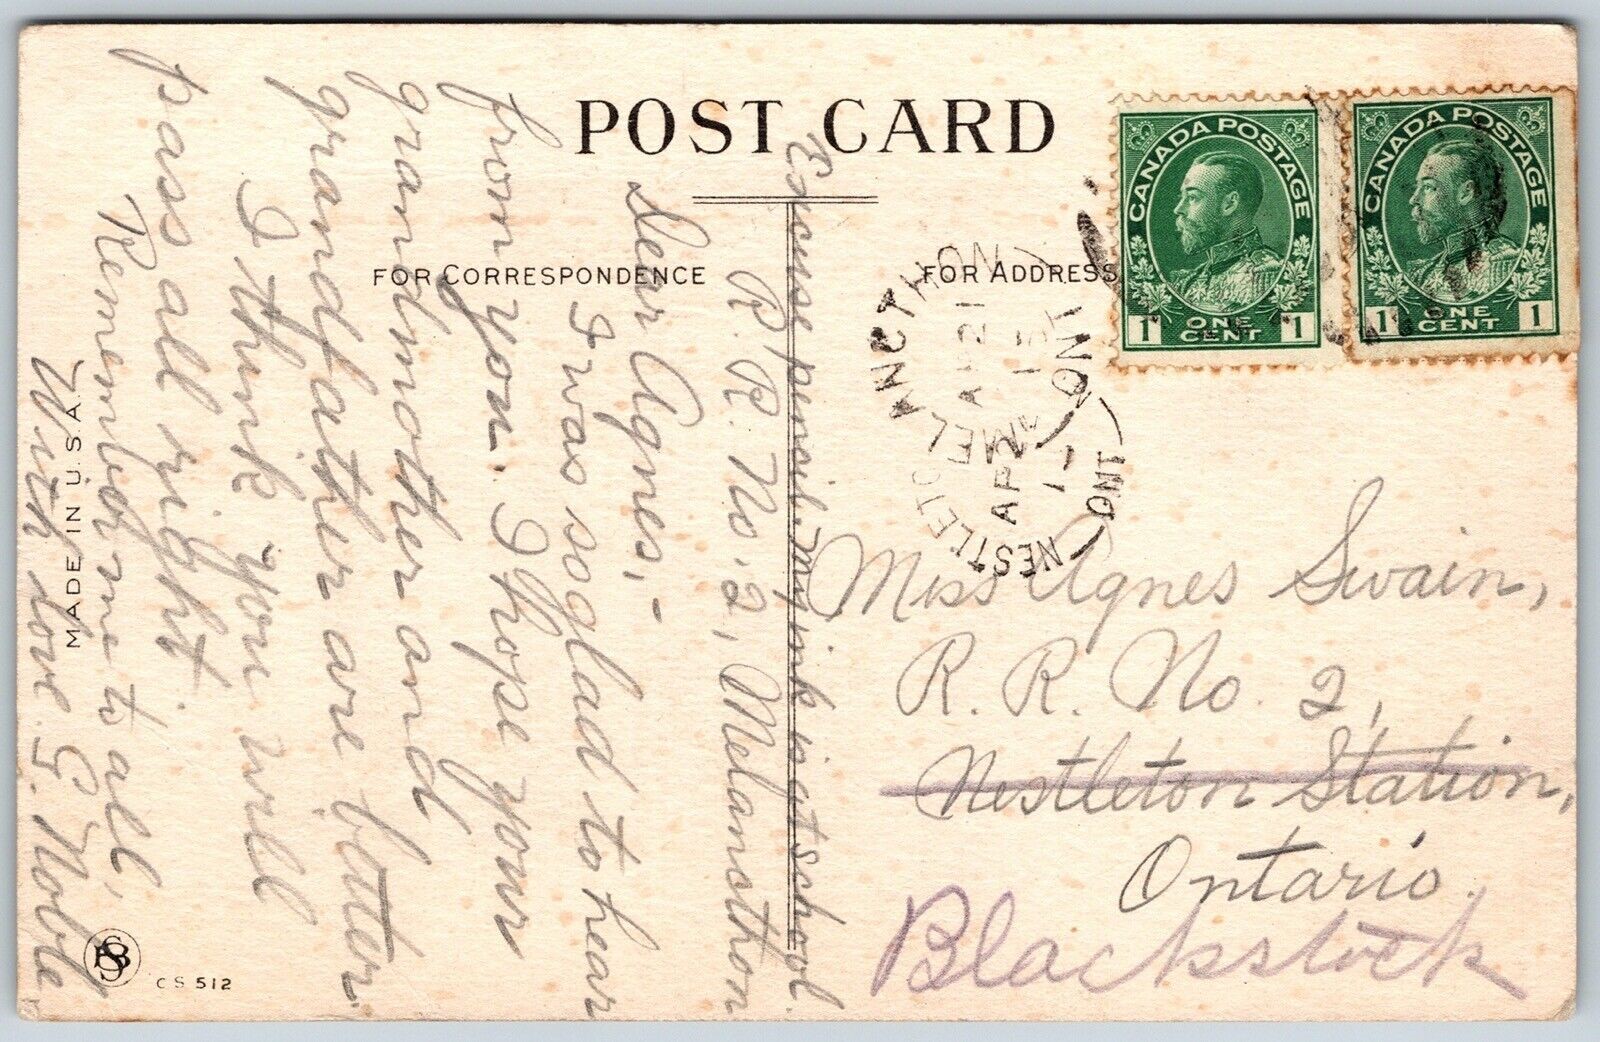 POST CARD
FOR CORRESPONDENCE
FOR ADDRESS
CANADA POSTAGE
1 ONE CENT 1
CANADA POSTAGE
1 ONE CENT 1
MELANCTHON
AP 21
15
ONT
NESTLETON
AP 2
15
ONT
Excuse pensil. My ink is at school.
R. R. No. 2, Melancthon
Dear Agnes,-
I was so glad to hear
from you. I hope your
grandmother and
grandfather are better.
I think you will
pass all right.
Remember me to all,
With love G. Noble
Miss Agnes Swain,
R. R. No. 2,
Nestleton Station,
Ontario.
Blackstock
MADE IN U.S.A.
CS 512